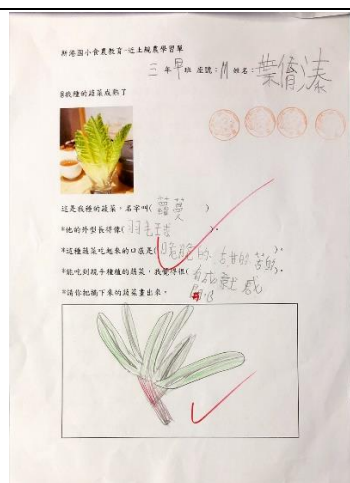 新港國小食農教育-近土親農學習單
三年甲班 座號:11 姓名:葉
◎我種的蔬菜成熟了
這是我種的蔬菜,名字叫(蘿蔓)
*他的外型長得像(羽毛)。
*這種蔬菜吃起來的口感是(脆脆的、)。
*能吃到親手種植的蔬菜,我覺得很(有成就感)。
*請你把摘下來的蔬菜畫出來。